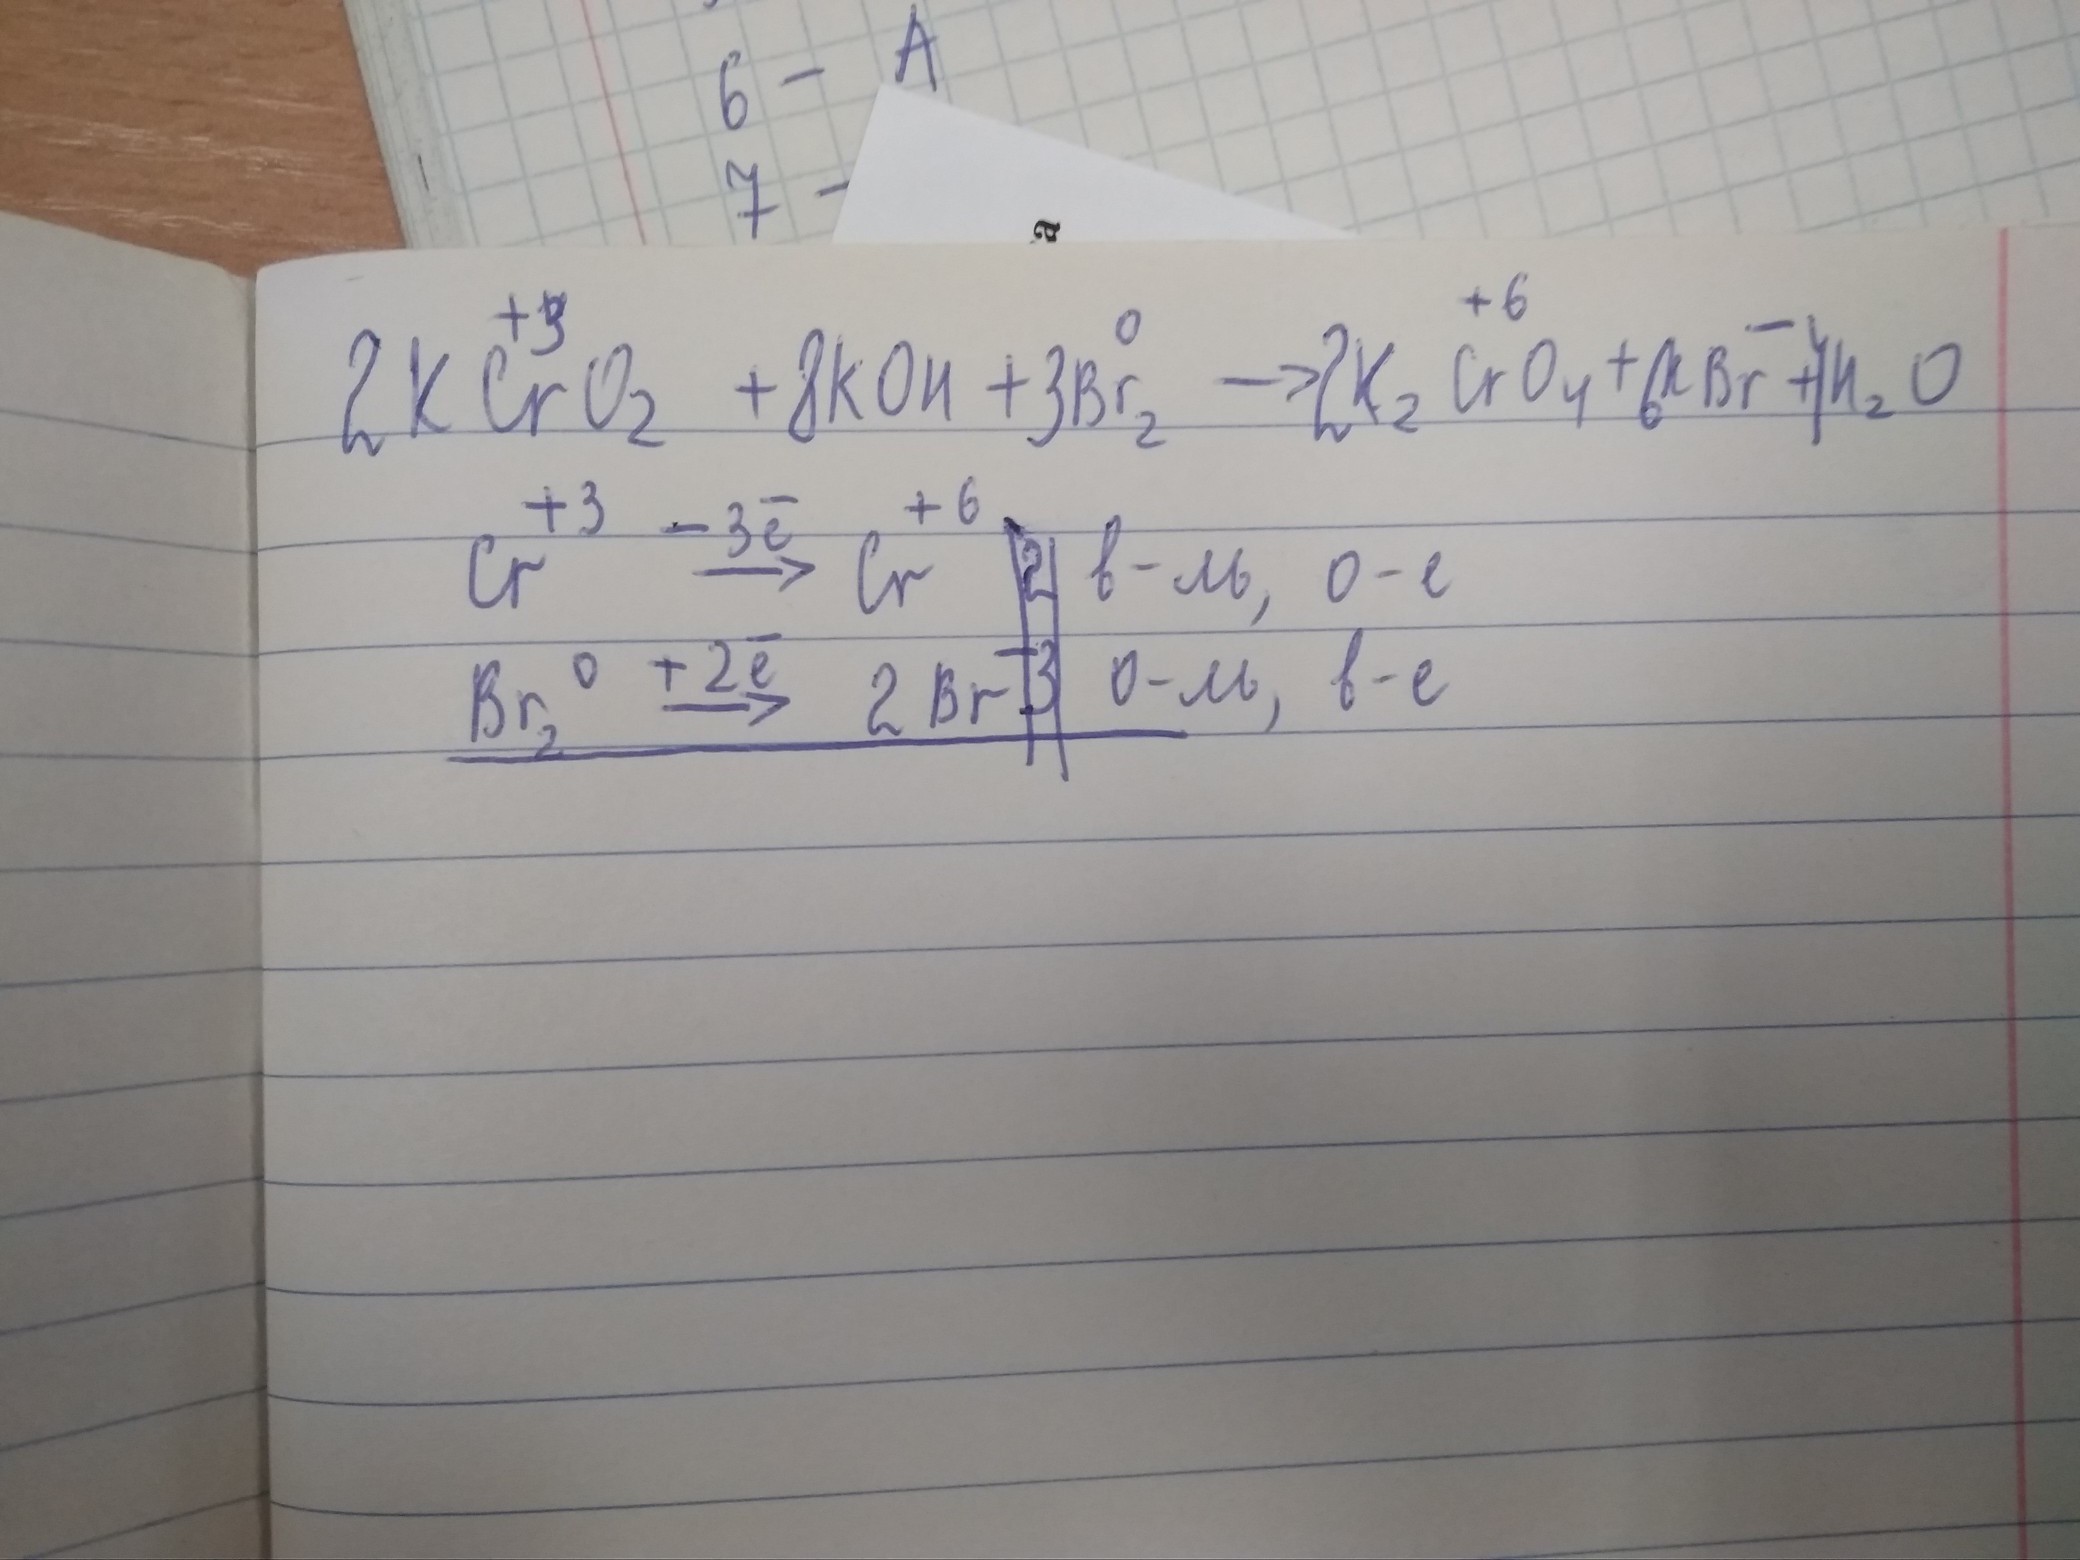 6 - A
7 -
а
+3 0 +6 -
2KCrO₂ + 8KOH + 3Br₂ → 2K₂CrO₄ + 6KBr + 4H₂O
Cr⁺³ -3ē → Cr⁺⁶ | 2 | в-ль, о-е
Br₂⁰ +2ē → 2Br⁻ | 3 | о-ль, в-е